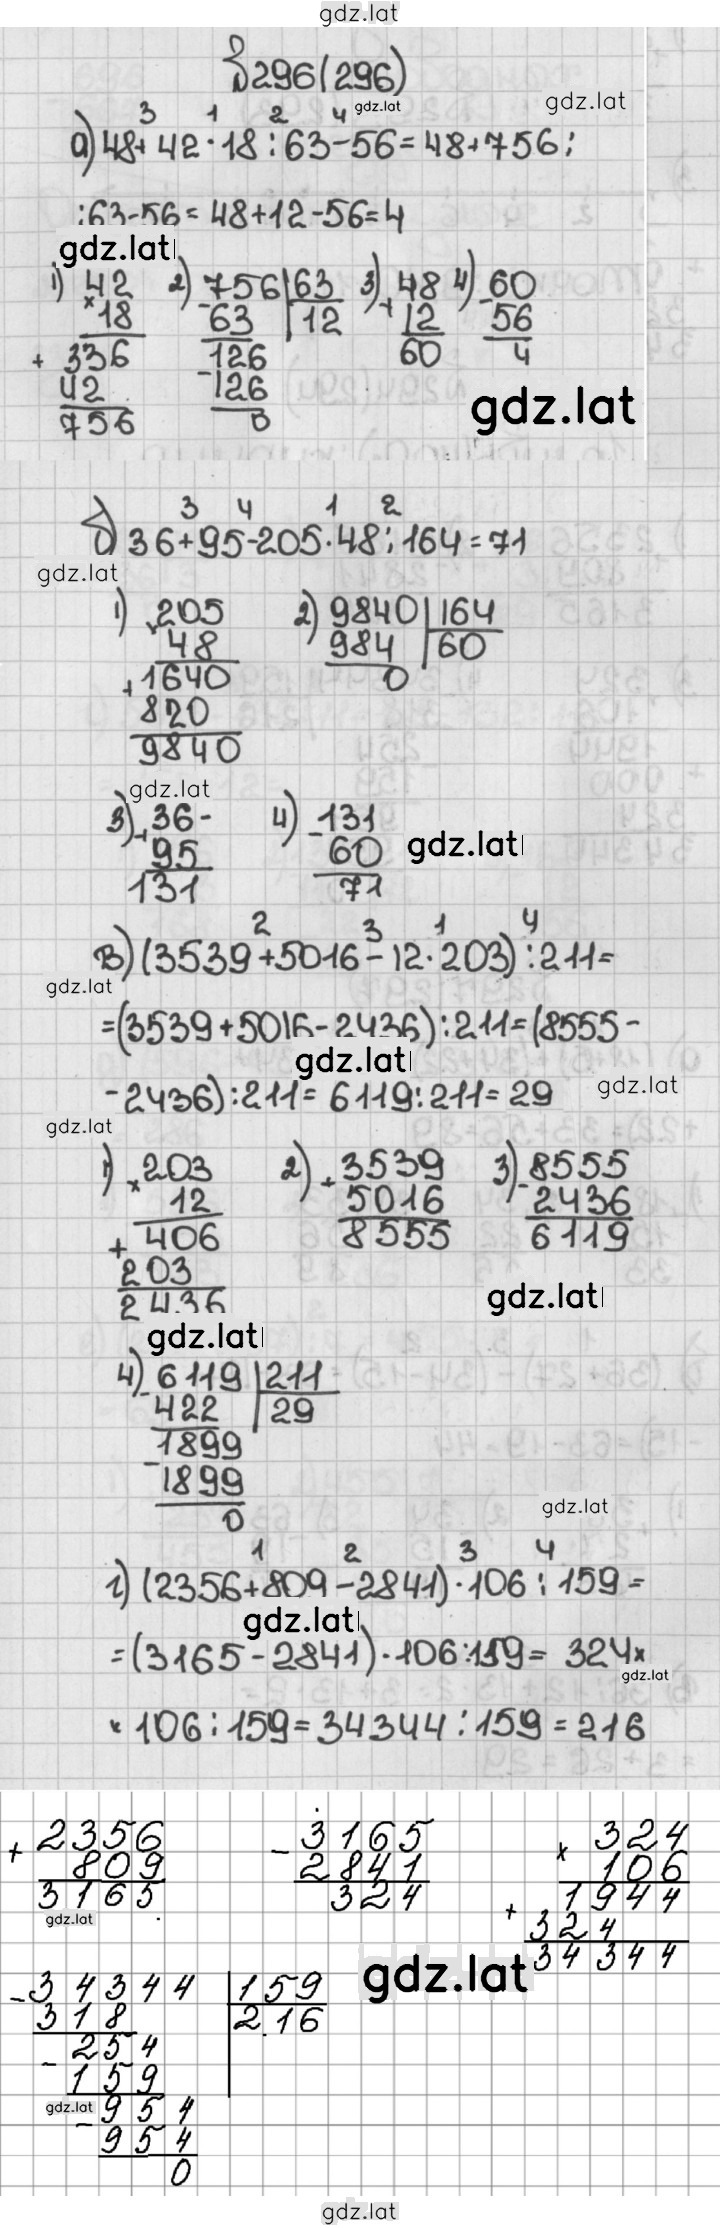 gdz.lat
№296(296)
gdz.lat
gdz.lat
3 1 2 4
а) 48+42·18:63-56=48+756:
:63-56=48+12-56=4
gdz.lat
1) 42 2) 756|63 3) 48 4) 60
× 18 - 63 |12 + 12 - 56
+ 336 126 60 4
42 - 126
756 0
gdz.lat
3 4 1 2
б) 36+95-205·48:164=71
gdz.lat
1) 205 2) 9840|164
× 48 984 |60
+ 1640 0
820
9840
gdz.lat
3) 36- 4) 131
+ 95 - 60
131 71
gdz.lat
2 3 1 4
в) (3539+5016-12·203):211=
gdz.lat
=(3539+5016-2436):211=(8555-
gdz.lat
-2436):211=6119:211=29
gdz.lat
gdz.lat
1) 203 2) 3539 3) 8555
× 12 + 5016 - 2436
+ 406 8555 6119
203
2436
gdz.lat
gdz.lat
4) 6119|211
- 422 |29
1899
- 1899
0
gdz.lat
1 2 3 4
г) (2356+809-2841)·106:159=
gdz.lat
=(3165-2841)·106:159= 324×
gdz.lat
×106:159=34344:159=216
+ 2356 - 3165 × 324
809 2841 106
3165 324 1944
gdz.lat
+ 324
34344
gdz.lat
- 34344|159
318 |216
- 254
159
gdz.lat
- 954
954
0
gdz.lat